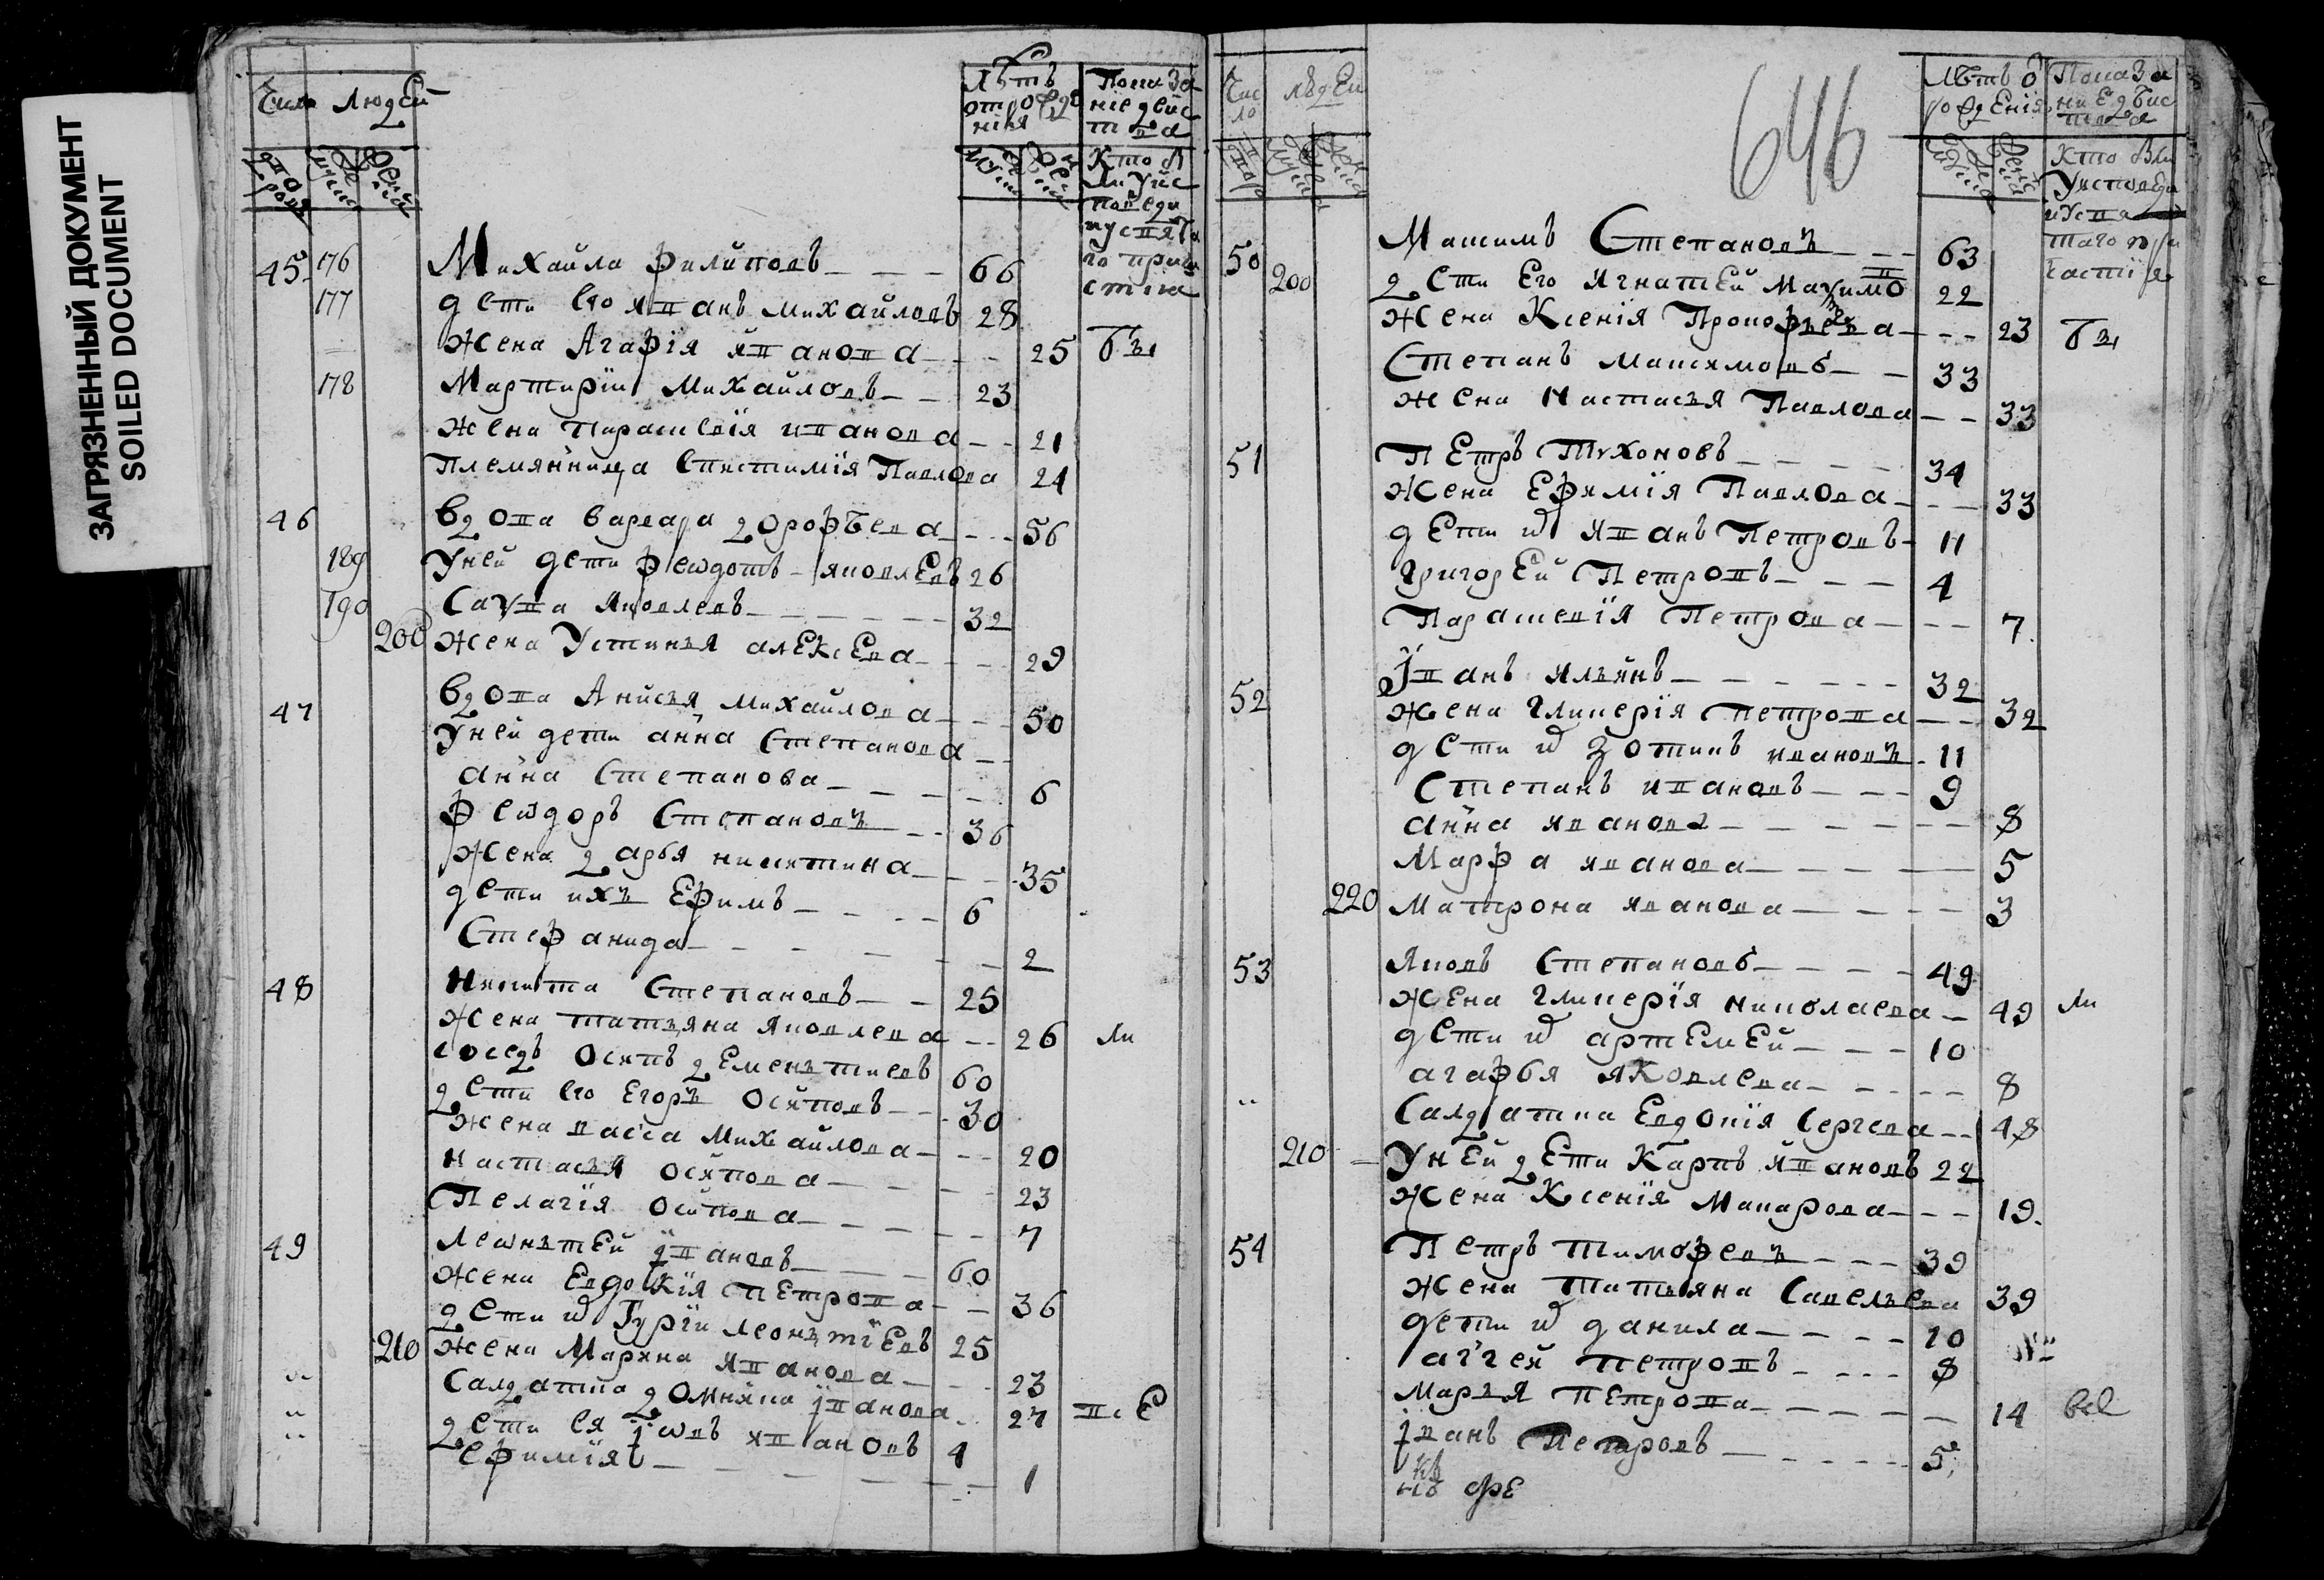 ЗАГРЯЗНЕННЫЙ ДОКУМЕНТ
SOILED DOCUMENT
Число Людей
Лѣтъ от рожденія
Показаніе двиства
Кто былъ у исповеди и у святаго причастия
45 176 Михайла Филиповъ 66
177 дети его Иванъ Михайловъ 28
жена Агафїя Иванова 25 бы
178 Мартирїи Михайловъ 23
жена Парасковїя Иванова 21
Племянница Епистимїя Павлова 21
46 вдова варвара дорофѣева 56
189 У ней дети Феѡдотъ Яковлевъ 26
190 Савва Яковлевъ 32
200 жена Устинья алексева 29
47 вдова Анисья Михайлова 50
У ней дети анна Степанова
анна Степанова 6
Феѡдоръ Степановъ 36
жена дарья никитина 35
дети ихъ Ефимъ 6
Стефанида 2
48 Никита Степановъ 25
жена татьяна Яковлева 26 ли
соседъ Осипъ дементиевъ 60
дети его Егоръ Осиповъ 30
жена васса Михайлова 20
настасья Осипова 23
Пелагїя Осипова 7
49 Леѡнътей Ївановъ 60
жена Евдокїя Петрова 36
дети ихъ Гурїи Леонътїевъ 25
210 жена Марина Иванова 23
Салдатка домника Їванова 27 все
дети ея Їѡвъ Ивановъ 4
Ефимїя 1
646
Число людей
Лѣтъ о рожденія
Показание двиства
Кто были у исповеди и у святаго причастїя
50 Максимъ Степановъ 63
200 дети его Игнатей Максимовъ 22
жена Ксенїя Прокофьева 23 бы
Степанъ Максимовъ 33
жена Настасья Павлова 33
51 Петръ Тихоновъ 34
жена Ефимїя Павлова 33
дети ихъ Иванъ Петровъ 11
Григорей Петровъ 4
Парасковїя Петрова 7
52 Їванъ Ильинъ 32
жена Гликерїя Петрова 32
дети ихъ Зотикъ Ивановъ 11
Степанъ Ивановъ 9
анна Иванова 8
Марфа Иванова 5
220 Матрона Иванова 3
53 Яковъ Степановъ 49
жена Гликерїя николаева 49 ли
дети ихъ артемей 10
агафья Яковлева 8
Салдатка Евдокїя Сергева 48
210 У ней дети Карпъ Ивановъ 22
жена Ксенїя Макарова 19
54 Петръ Тимофевъ 39
жена Татьяна Савельева 39
дети ихъ данила 10
аггей Петровъ 8
Марья Петрова 14 все
Їванъ Петровъ 5